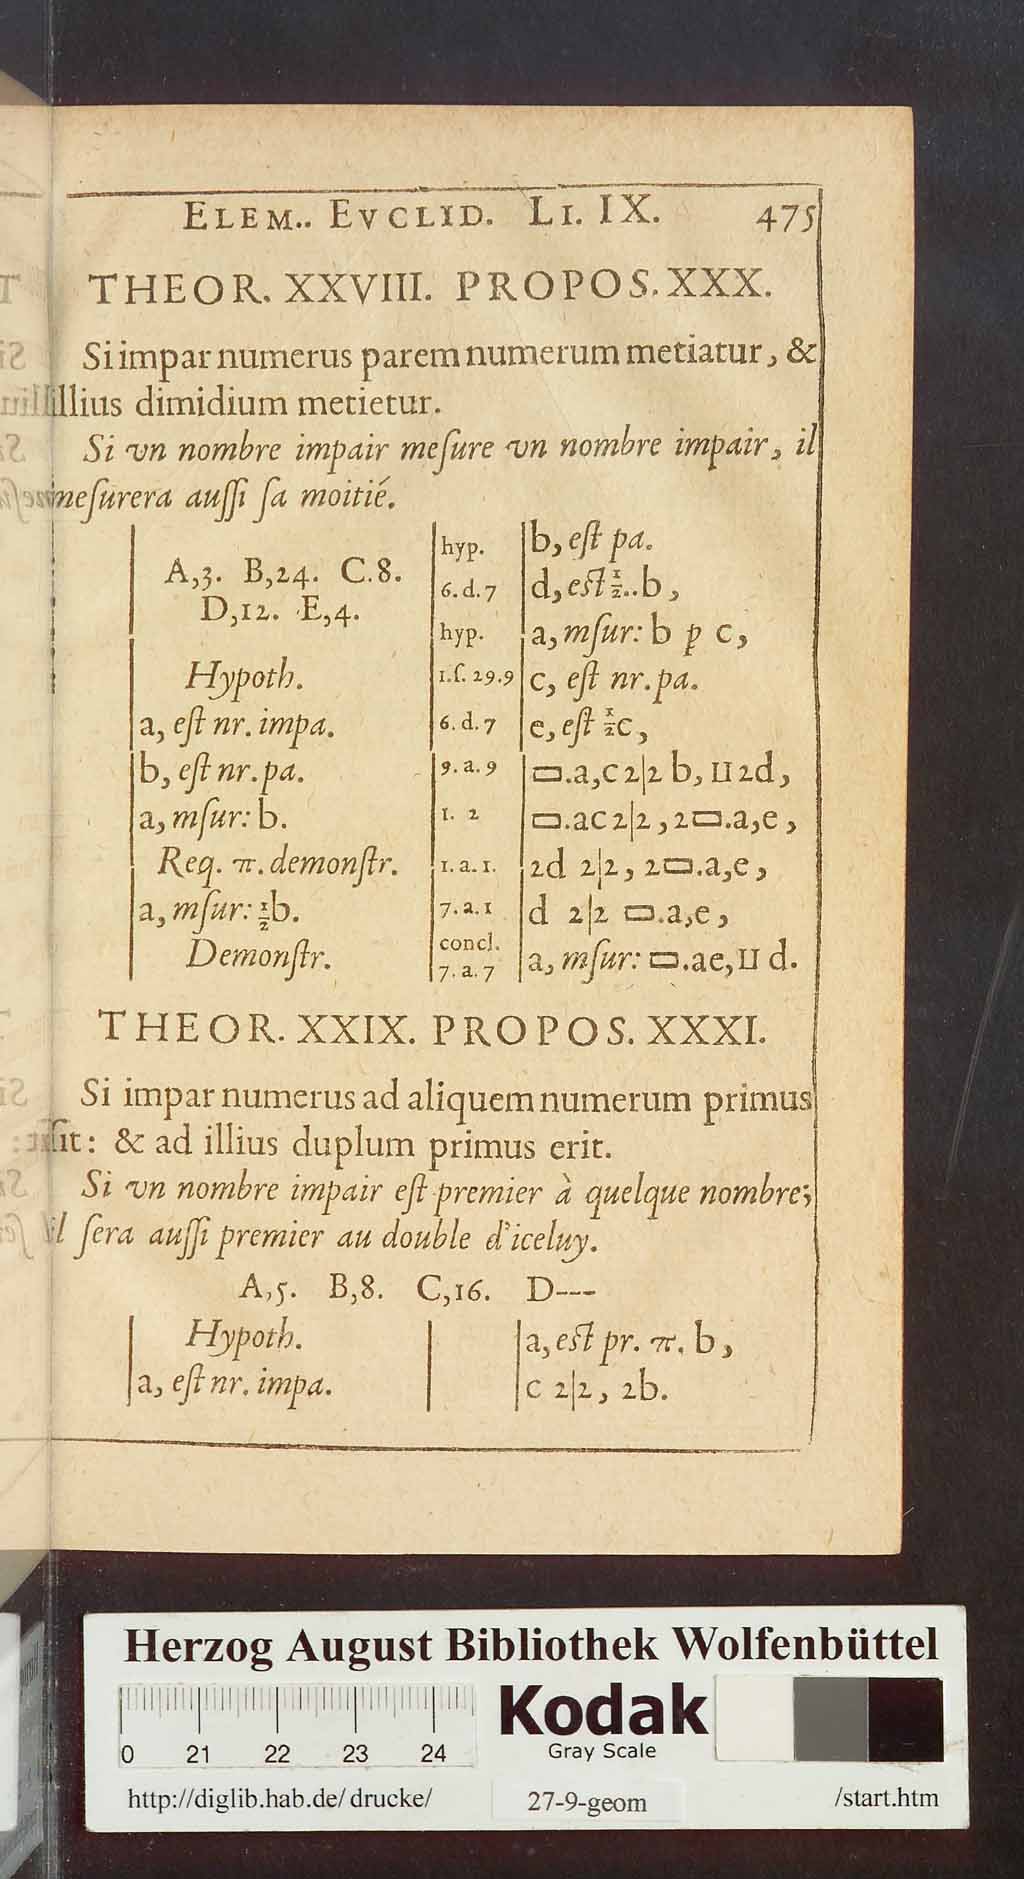 ELEM.. EVCLID. LI. IX. 475
THEOR. XXVIII. PROPOS. XXX.
Si impar numerus parem numerum metiatur, &
illius dimidium metietur.
Si vn nombre impair meſure vn nombre impair, il
meſurera auſſi ſa moitié.
A,3. B,24. C.8.
D,12. E,4.
Hypoth.
a, eſt nr. impa.
b, eſt nr. pa.
a, mſur: b.
Req. π. demonſtr.
a, mſur: ½b.
Demonſtr.
hyp. b, eſt pa.
6. d. 7 d, eſt ½..b,
hyp. a, mſur: b p c,
1.ſ. 29.9 c, eſt nr. pa.
6. d. 7 e, eſt ½c,
9. a. 9 ▭.a,c 2|2 b, II 2d,
1. 2 ▭.ac 2|2, 2▭.a,e,
1. a. 1. 2d 2|2, 2▭.a,e,
7. a. 1 d 2|2 ▭.a,e,
concl.
7. a. 7 a, mſur: ▭.ae, II d.
THEOR. XXIX. PROPOS. XXXI.
Si impar numerus ad aliquem numerum primus
ſit: & ad illius duplum primus erit.
Si vn nombre impair eſt premier à quelque nombre;
il ſera auſſi premier au double d'iceluy.
A,5. B,8. C,16. D---
Hypoth.
a, eſt nr. impa.
a, eſt pr. π. b,
c 2|2, 2b.
Herzog August Bibliothek Wolfenbüttel
0 21 22 23 24
Kodak
Gray Scale
http://diglib.hab.de/drucke/ 27-9-geom /start.htm